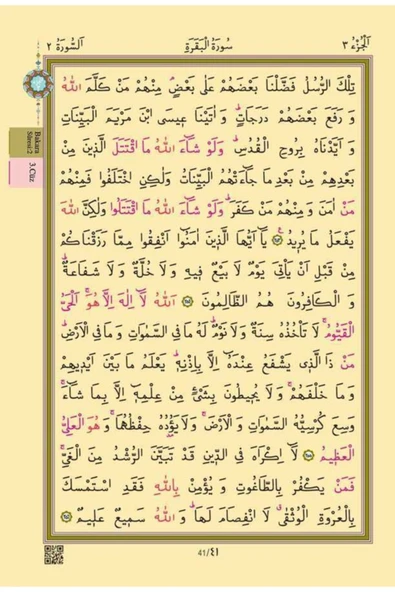 اَلْجُزْءُ ٣
سُورَةُ الْبَقَرَةِ
اَلسُّورَةُ ٢
تِلْكَ الرُّسُلُ فَضَّلْنَا بَعْضَهُمْ عَلٰى بَعْضٍۢ مِنْهُمْ مَنْ كَلَّمَ اللّٰهُ
وَ رَفَعَ بَعْضَهُمْ دَرَجَاتٍۜ وَ اٰتَيْنَا عٖيسَى ابْنَ مَرْيَمَ الْبَيِّنَاتِ
وَ اَيَّدْنَاهُ بِرُوحِ الْقُدُسِۜ وَلَوْ شَٓاءَ اللّٰهُ مَا اقْتَتَلَ الَّذٖينَ مِنْ
بَعْدِهِمْ مِنْ بَعْدِ مَا جَٓاءَتْهُمُ الْبَيِّنَاتُ وَلٰكِنِ اخْتَلَفُوا فَمِنْهُمْ
مَنْ اٰمَنَ وَمِنْهُمْ مَنْ كَفَرَۜ وَلَوْ شَٓاءَ اللّٰهُ مَا اقْتَتَلُوا وَلٰكِنَّ اللّٰهَ
يَفْعَلُ مَا يُرٖيدُ ﴿٢٥٣﴾ يَٓا اَيُّهَا الَّذٖينَ اٰمَنُٓوا اَنْفِقُوا مِمَّا رَزَقْنَاكُمْ
مِنْ قَبْلِ اَنْ يَأْتِيَ يَوْمٌ لَا بَيْعٌ فٖيهِ وَ لَا خُلَّةٌ وَ لَا شَفَاعَةٌۜ
وَ الْكَافِرُونَ هُمُ الظَّالِمُونَ ﴿٢٥٤﴾ اَللّٰهُ لَٓا اِلٰهَ اِلَّا هُوَۚ اَلْحَيُّ
الْقَيُّومُۚ لَا تَأْخُذُهُ سِنَةٌ وَلَا نَوْمٌۜ لَهُ مَا فِي السَّمٰوَاتِ وَ مَا فِي الْاَرْضِۜ
مَنْ ذَا الَّذٖي يَشْفَعُ عِنْدَهُٓ اِلَّا بِاِذْنِهٖۜ يَعْلَمُ مَا بَيْنَ اَيْدٖيهِمْ
وَ مَا خَلْفَهُمْۚ وَ لَا يُحٖيطُونَ بِشَيْءٍ مِنْ عِلْمِهٖٓ اِلَّا بِمَا شَٓاءَۚ
وَسِعَ كُرْسِيُّهُ السَّمٰوَاتِ وَ الْاَرْضَۚ وَلَا يَؤُ۫دُهُ حِفْظُهُمَاۚ وَ هُوَ الْعَلِيُّ
الْعَظٖيمُ ﴿٢٥٥﴾ لَٓا اِكْرَاهَ فِي الدّٖينِ قَدْ تَبَيَّنَ الرُّشْدُ مِنَ الْغَيِّۚ
فَمَنْ يَكْفُرْ بِالطَّاغُوتِ وَ يُؤْمِنْ بِاللّٰهِ فَقَدِ اسْتَمْسَكَ
بِالْعُرْوَةِ الْوُثْقٰىۗ لَا انْفِصَامَ لَهَاۜ وَ اللّٰهُ سَمٖيعٌ عَلٖيمٌ ﴿٢٥٦﴾
Bakara
Sûresi:2
3.Cüz
41/٤١